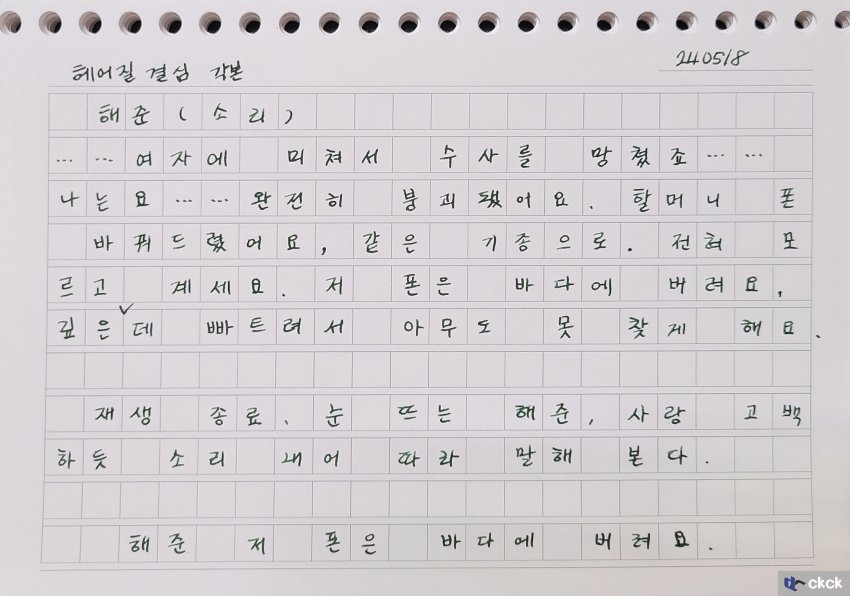 헤어질 결심 각본
240518
해준 (소리)
…… 여자에 미쳐서 수사를 망쳤죠 ……
나는요 …… 완전히 붕괴됐어요. 할머니 폰
바꿔드렸어요, 같은 기종으로. 전혀 모
르고 계세요. 저 폰은 바다에 버려요,
깊은∨데 빠트려서 아무도 못 찾게 해요.
재생 종료. 눈 뜨는 해준, 사랑 고백
하듯 소리 내어 따라 말해 본다.
해준 저 폰은 바다에 버려요.
ckck